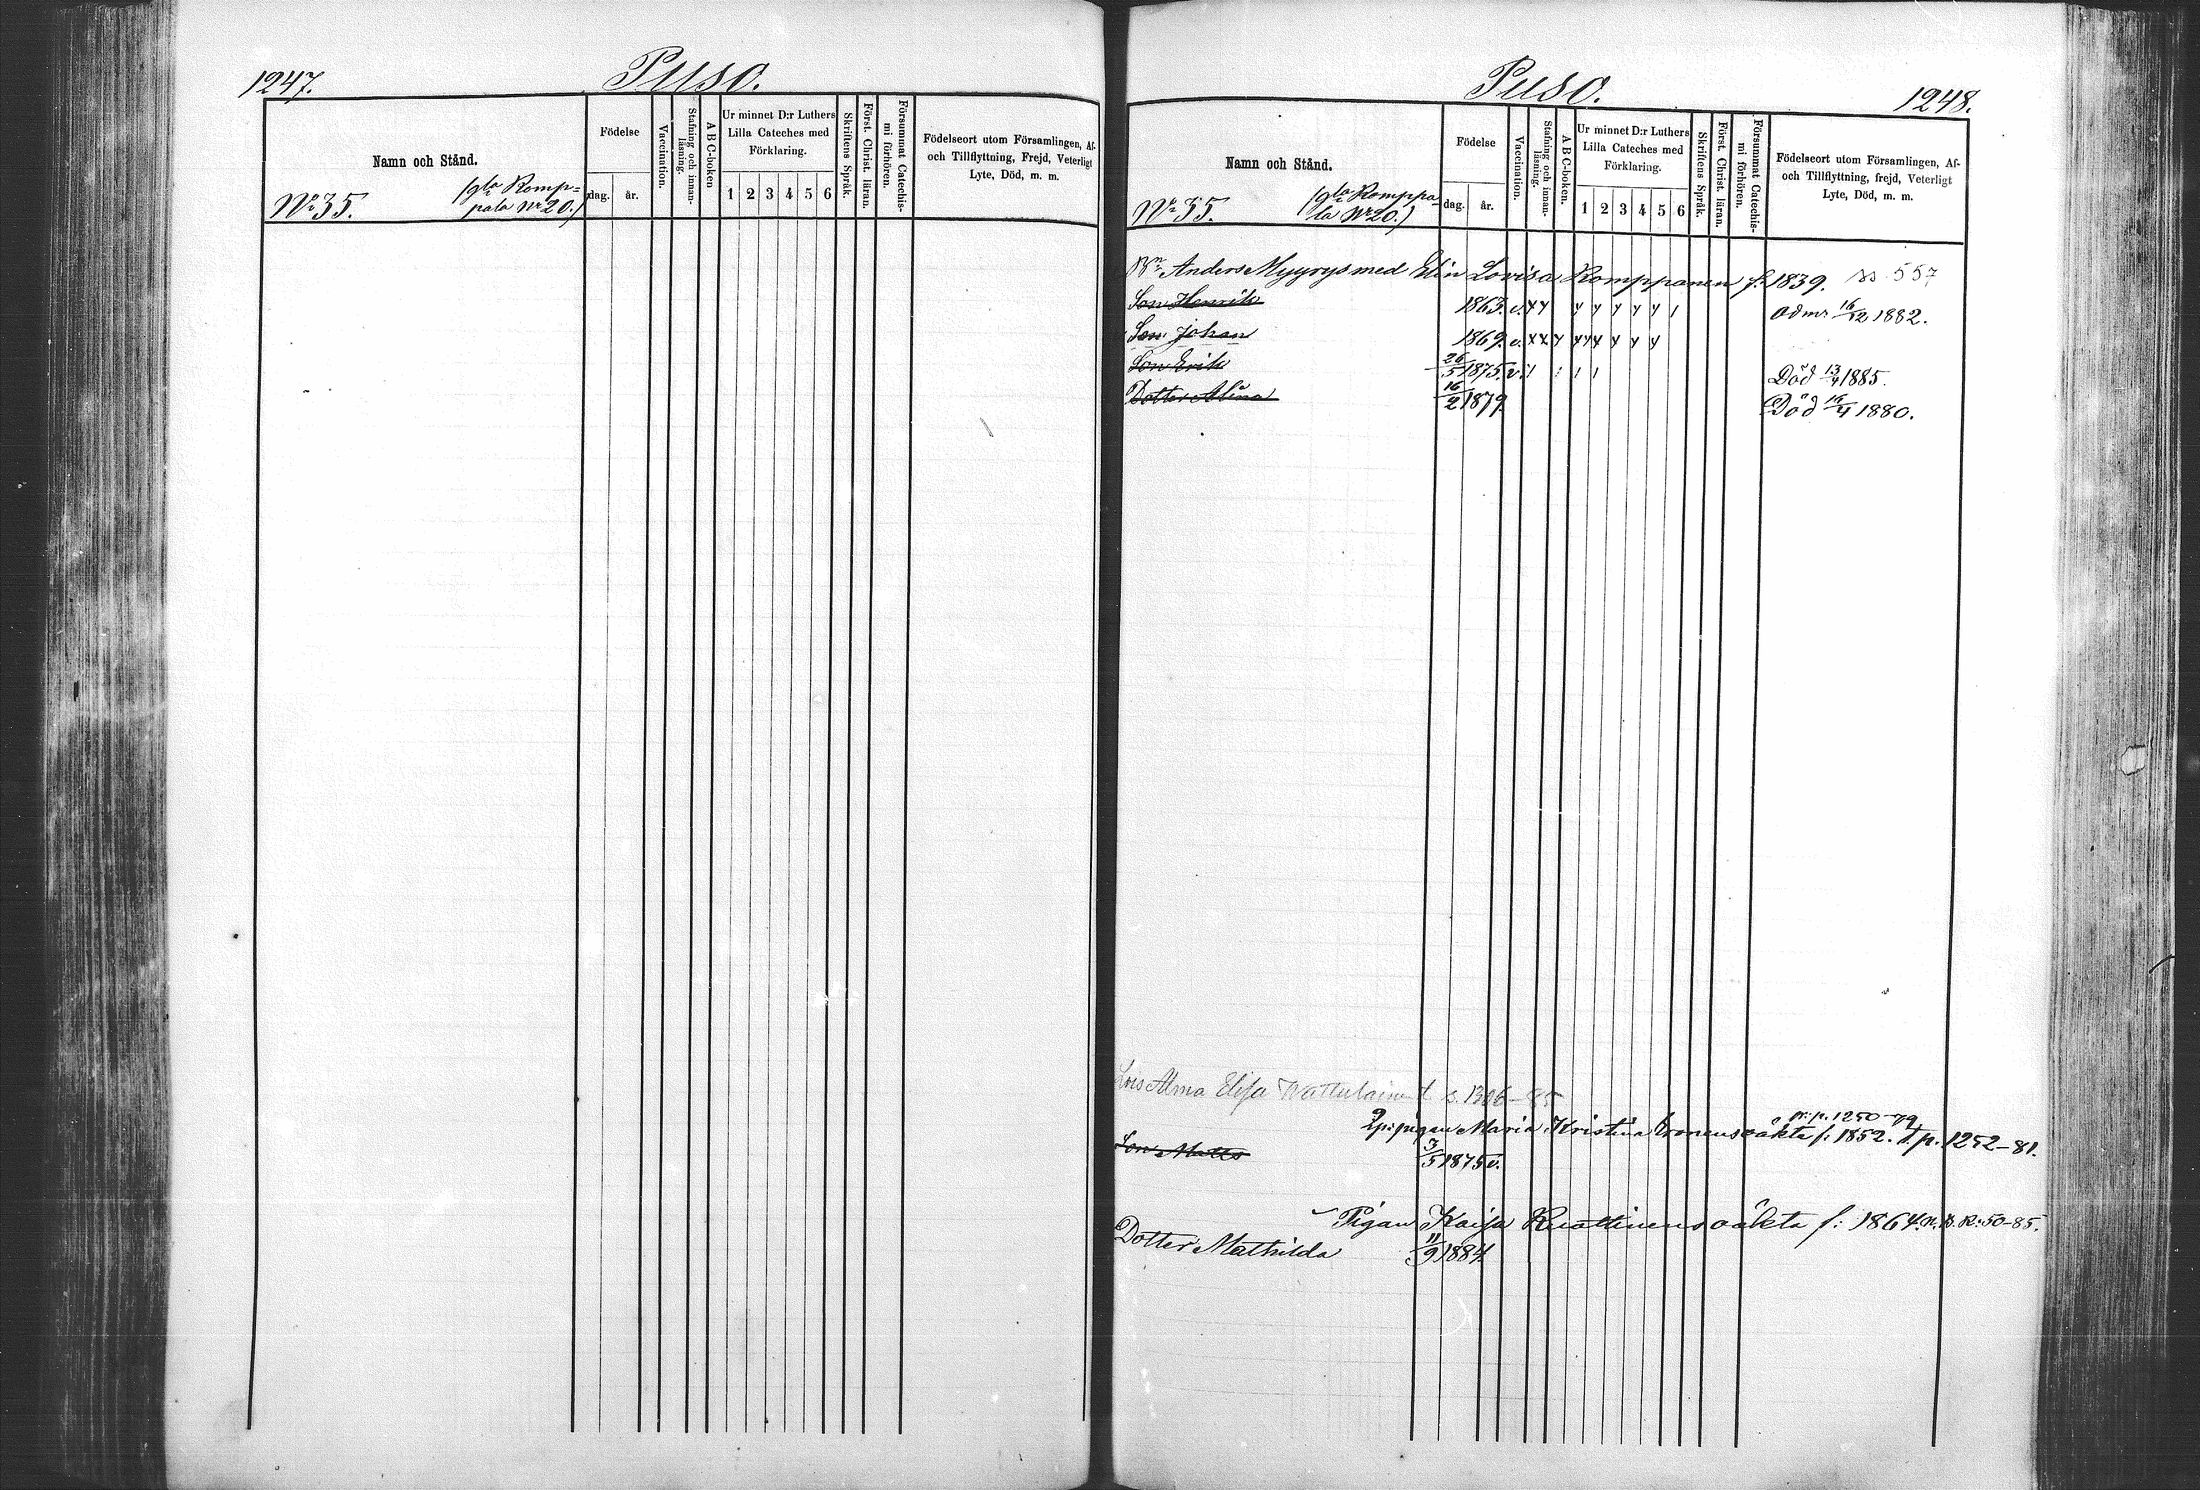 1247.
Puso.
Namn och Stånd.
Födelse
dag.
år.
Vaccination.
Stafning och innan-
läsning.
A B C-boken
Ur minnet D:r Luthers
Lilla Cateches med
Förklaring.
1 2 3 4 5 6
Skriftens Språk.
Först. Christ. läran.
Försummat Catechis-
mi förhören.
Födelseort utom Församlingen, Af-
och Tillflyttning, Frejd, Veterligt
Lyte, Död, m. m.
No 35.
(gla Romp-
pala No 20.)
Puso.
1248.
Namn och Stånd.
Födelse
dag.
år.
Vaccination.
Stafning och innan-
läsning.
A B C-boken.
Ur minnet D:r Luthers
Lilla Cateches med
Förklaring.
1 2 3 4 5 6
Skriftens Språk.
Först. Christ. läran.
Försummat Catechis-
mi förhören.
Födelseort utom Församlingen, Af-
och Tillflyttning, frejd, Veterligt
Lyte, Död, m. m.
No 35.
(gla Romppa
la No 20.)
Bn Anders Myyrys med Elin Lovisa Romppanen f. 1839. ss 557
Son Henrik 1863. v. 16/12 1882.
Son Johan 1869. v.
Son Erik 26/5 1875. v. Död 13/4 1885.
Dotter Alina 16/2 1879. Död 16/4 1880.
Lös Alma Elisa s. 1306-85
p. 1250-79
pigan Maria Kristina oäkta f: 1852. t. p. 1252-81.
Son Matts 3/5 1875 v.
Pigan Kaisa oäkta f: 1864. 50-85.
Dotter Mathilda 11/9 1884.